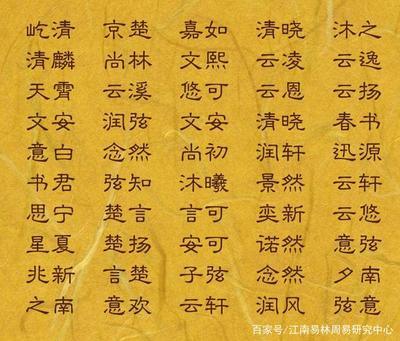 屹清 京楚 嘉如 清晓 沐之
清麟 尚林 文熙 云凌 云逸
天霄 云溪 悠可 云恩 云扬
文安 润弦 文安 清晓 春书
意白 念然 尚初 润轩 迅源
书君 弦知 沐曦 景然 云轩
思宁 楚言 言可 奕新 云悠
星夏 楚扬 安可 诺然 意弦
兆新 言楚 子弦 念然 夕南
之南 意欢 云轩 润风 弦意
百家号/江南易林周易研究中心